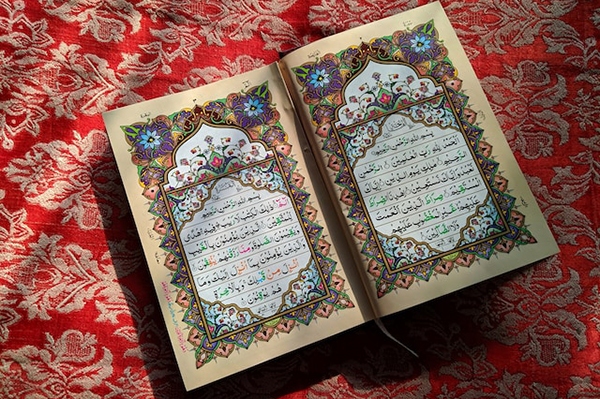 بِسْمِ اللَّهِ الرَّحْمٰنِ الرَّحِيمِ
الْحَمْدُ لِلَّهِ رَبِّ الْعَالَمِينَ الرَّحْمٰنِ
الرَّحِيمِ مَالِكِ يَوْمِ الدِّينِ إِيَّاكَ
نَعْبُدُ وَإِيَّاكَ نَسْتَعِينُ اهْدِنَا
الصِّرَاطَ الْمُسْتَقِيمَ صِرَاطَ
الَّذِينَ أَنْعَمْتَ عَلَيْهِمْ
غَيْرِ الْمَغْضُوبِ عَلَيْهِمْ
وَلَا الضَّالِّينَ
بِسْمِ اللَّهِ الرَّحْمٰنِ الرَّحِيمِ
الم ذٰلِكَ الْكِتَابُ لَا رَيْبَ فِيهِ هُدًى
لِلْمُتَّقِينَ الَّذِينَ يُؤْمِنُونَ بِالْغَيْبِ
وَيُقِيمُونَ الصَّلٰوةَ وَمِمَّا رَزَقْنَاهُمْ يُنْفِقُونَ
وَالَّذِينَ يُؤْمِنُونَ بِمَا أُنْزِلَ إِلَيْكَ وَمَا
أُنْزِلَ مِنْ قَبْلِكَ وَبِالْآخِرَةِ
هُمْ يُوقِنُونَ